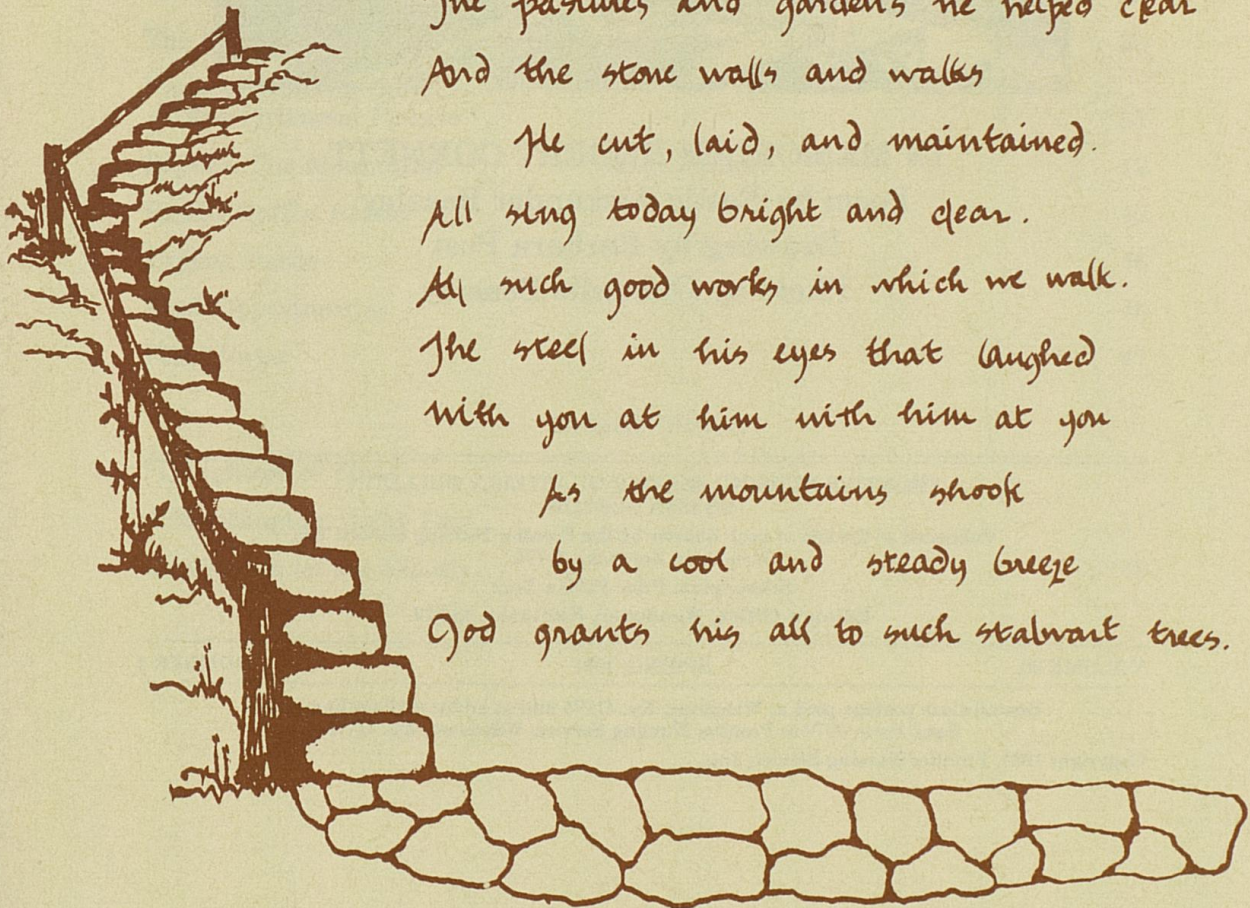 The pastures and gardens he helped clear
And the stone walls and walks
He cut, laid, and maintained.
All sing today bright and clear.
All such good works in which we walk.
The steel in his eyes that laughed
with you at him with him at you
As the mountains shook
by a cool and steady breeze
God grants his all to such stalwart trees.